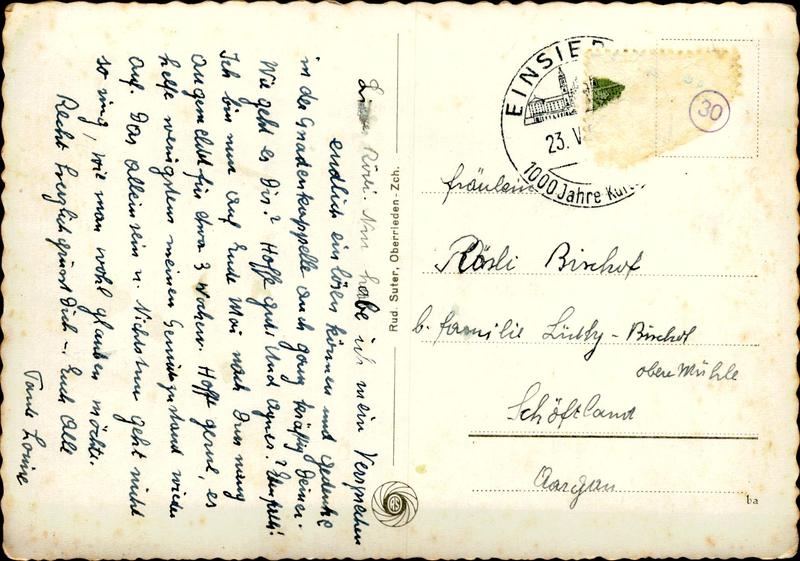 Liebe Rösli. Nun habe ich mein Versprechen
endlich einlösen können und gedenke
in der Gnadenkappelle auch ganz kräftig Deiner.
Wie geht es Dir? Hoffe gut. Und Agnes?
Ich bin nun auf Ende Mai nach
angemeldet für etwa 3 Wochen. Hoffe gerne, es
helfe wenigstens meinen Gemütszustand wieder
auf. Das Alleinsein u. Nichtstun geht nicht
so ring, wie man wohl glauben möchte.
Recht herzlich grüsst Dich - Euch Alle
Tante Louise
Rud. Suter, Oberrieden-Zch.
RS
EINSIE
23. V
1000 Jahre Kul
30
Fräulein
Rösli Bischof
b. Familie Lüthy-Bischof
obere Mühle
Schöftland
Aargau
ba